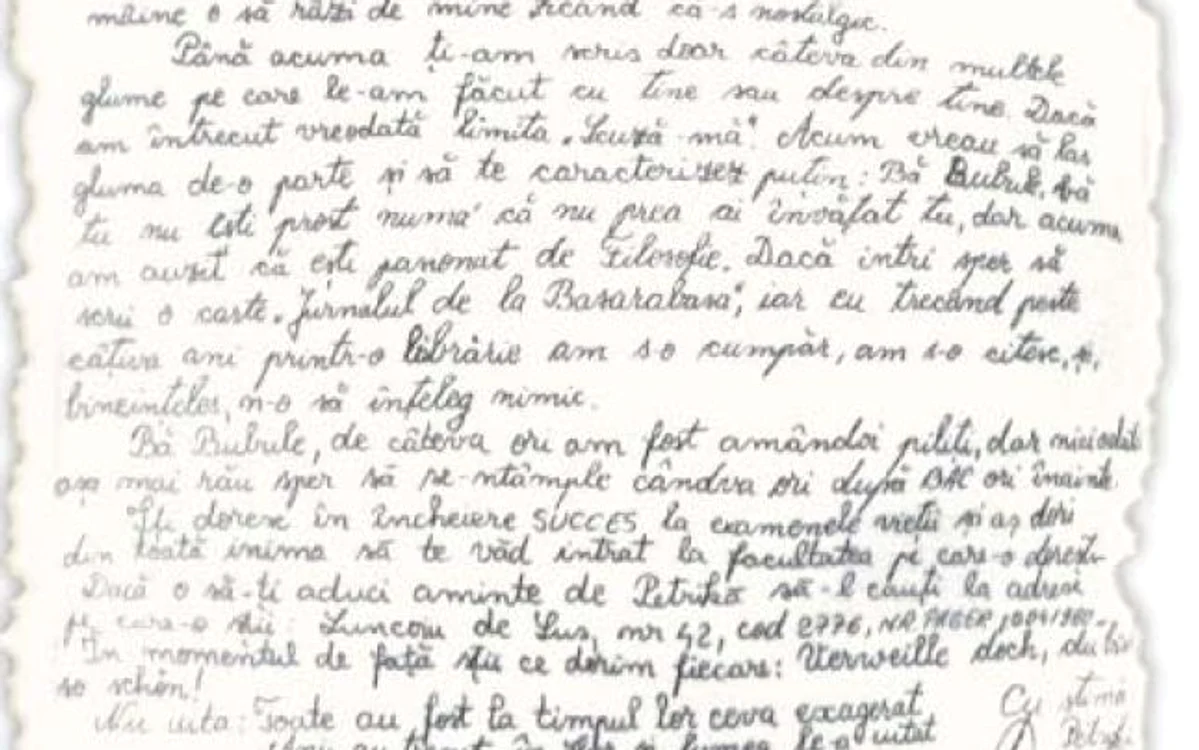 mâine o să râzi de mine zicând că-s nostalgic.
Până acuma ți-am scris doar câteva din multele
glume pe care le-am făcut cu tine sau despre tine. Dacă
am întrecut vreodată limita „Scuză-mă". Acum vreau să las
gluma de-o parte și să te caracterizez puțin: Bă Bubule, bă
tu nu ești prost numa' că nu prea ai învățat tu, dar acuma
am auzit că ești pasionat de Filosofie. Dacă intri sper să
scrii o carte „Jurnalul de la Basarabasa", iar eu trecând peste
câțiva ani printr-o librărie am s-o cumpăr, am s-o citesc, și,
bineințeles, n-o să înțeleg nimic.
Bă Bubule, de câteva ori am fost amândoi piliți, dar niciodată
așa mai rău sper să se-ntâmple cândva ori după BAC ori înainte.
Îți doresc în încheiere SUCCES la examenele vieții și aș dori
din toată inima să te văd intrat la facultatea pe care-o dorești
Dacă o să-ți aduci aminte de să-l cauți la adresa
pe care-o știi: de Sus, nr 42, cod 2776, NR PAGER
În momentul de față știu ce dorim fiecare: Verweille doch, du bist
so schön!
Nu uita: Toate au fost la timpul lor ceva exagerat
Cu stimă
au trecut în și lumea le-a uitat